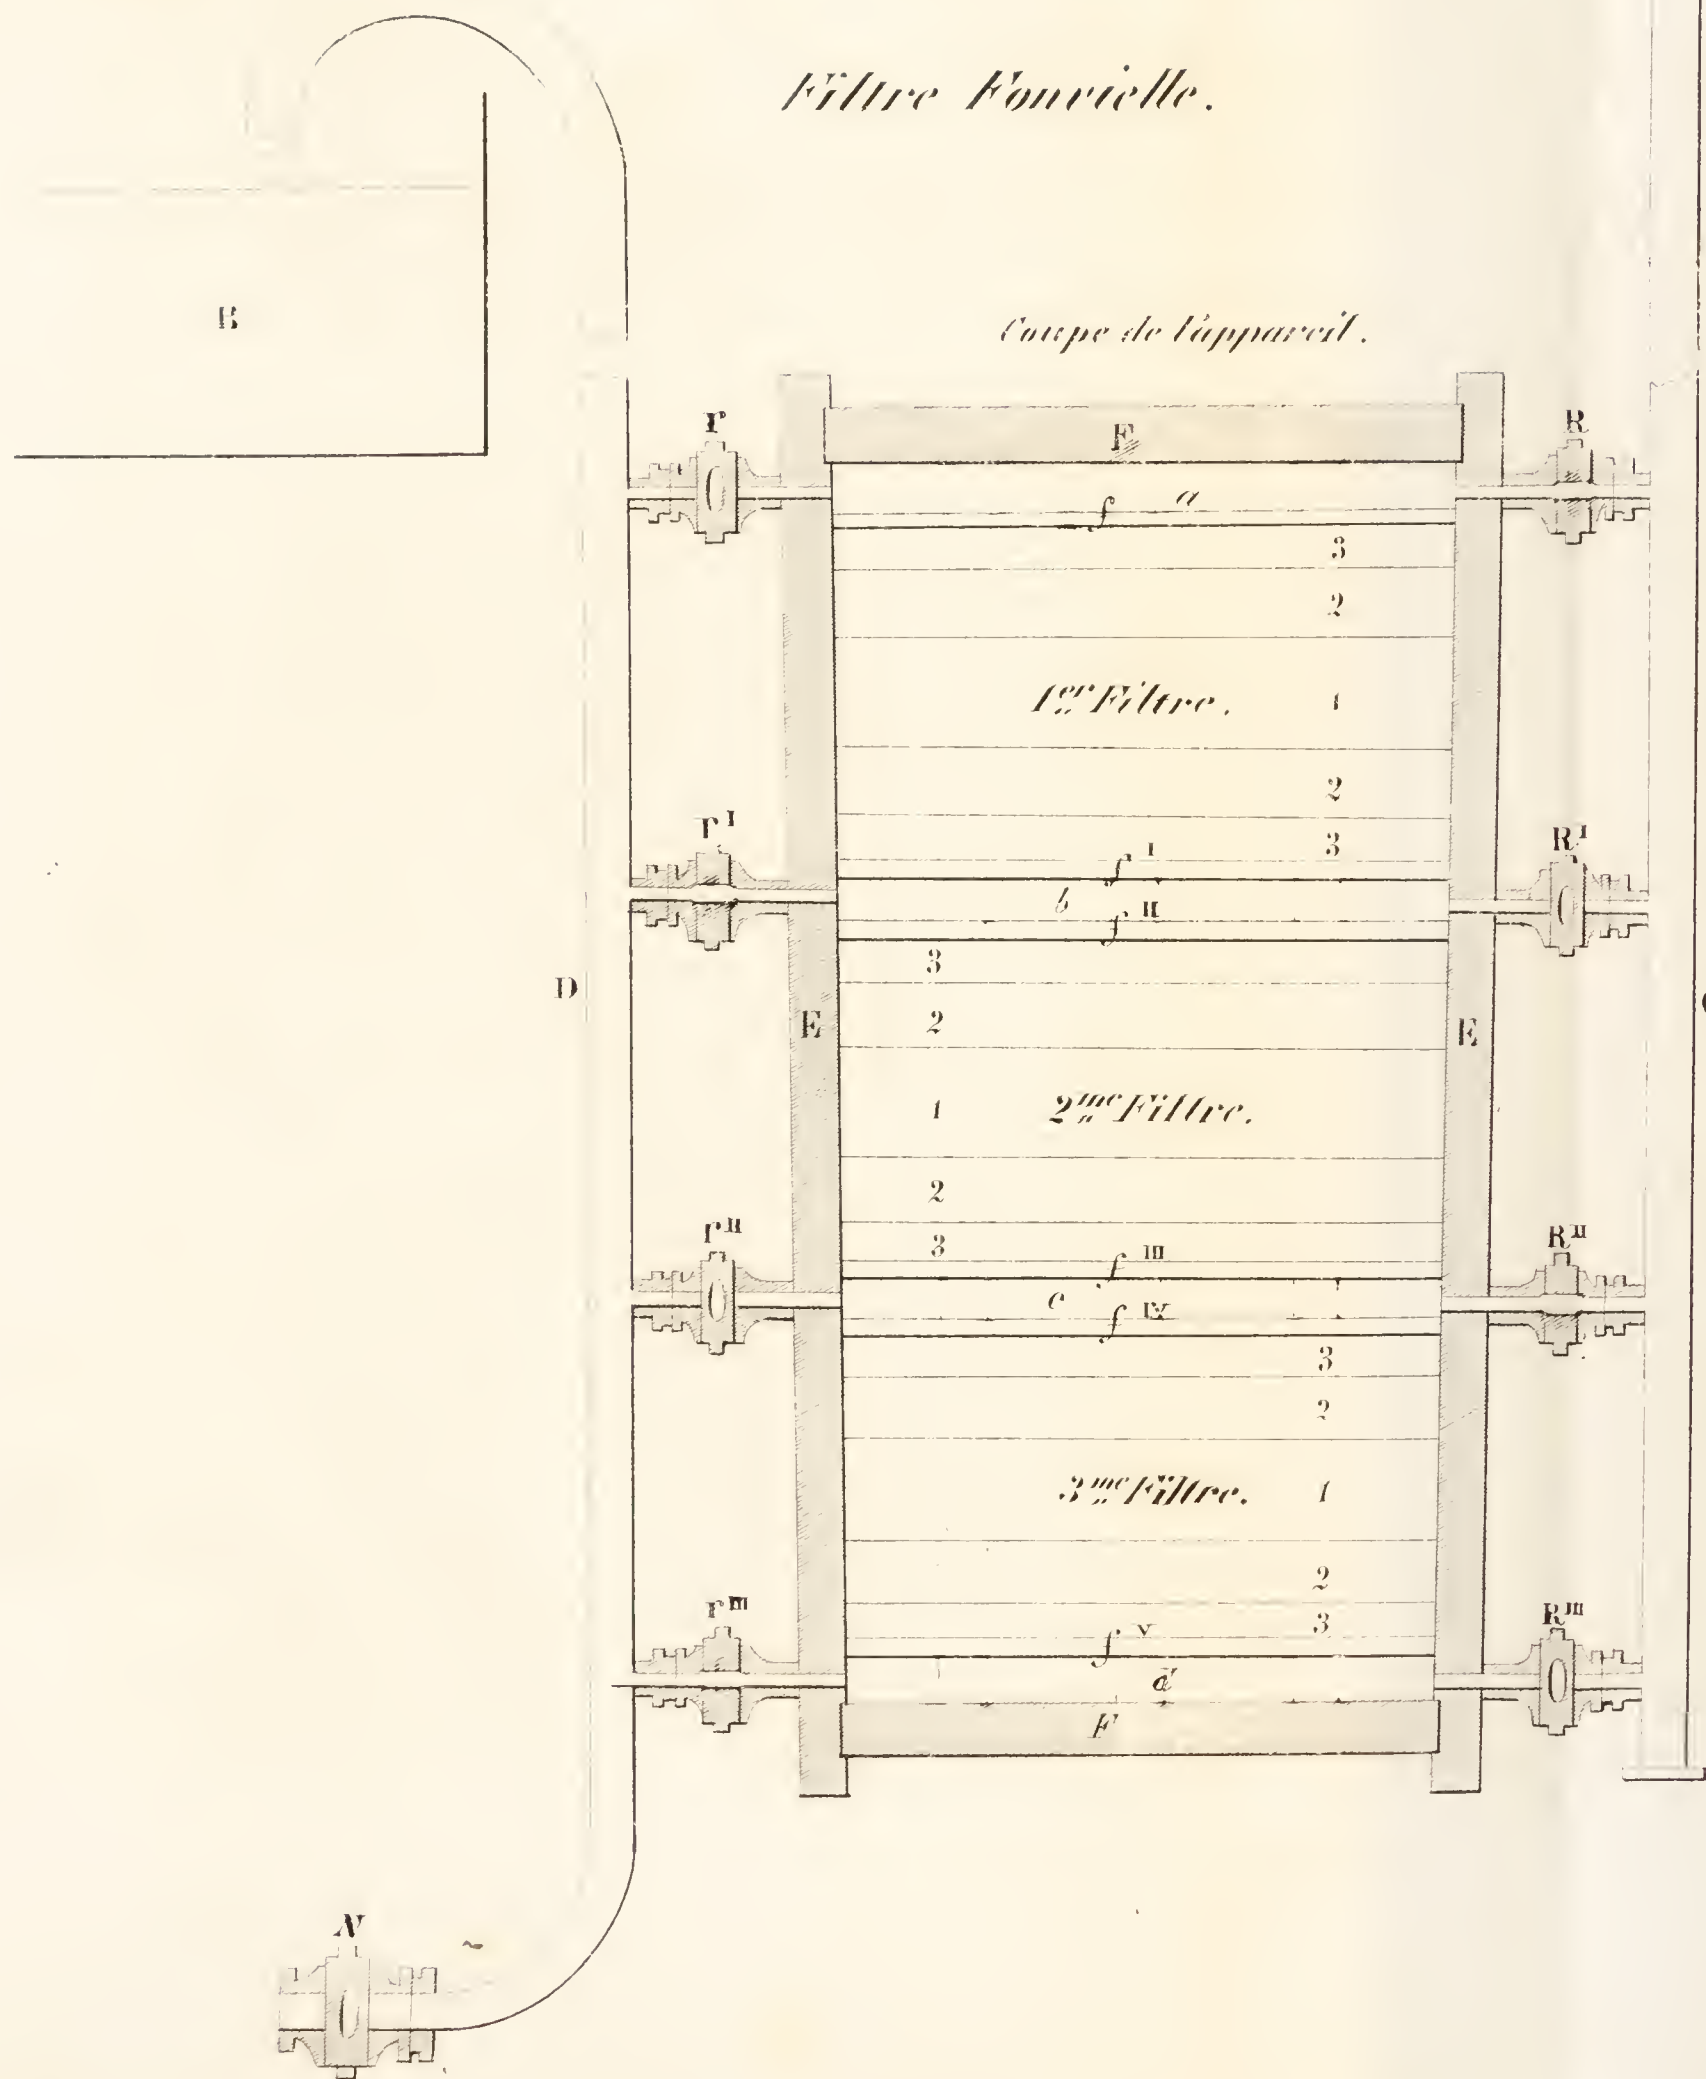 Filtre Fonvielle.
B
Coupe de l'appareil.
r
F
R
a
f
3
2
1er Filtre. 1
2
rI
3
RI
fI
b
fII
3
D
2
E
E
1
2me Filtre.
2
rII
3
RII
fIII
c
fIV
3
2
3me Filtre. 1
2
rIII
3
RIII
fV
d
F
N